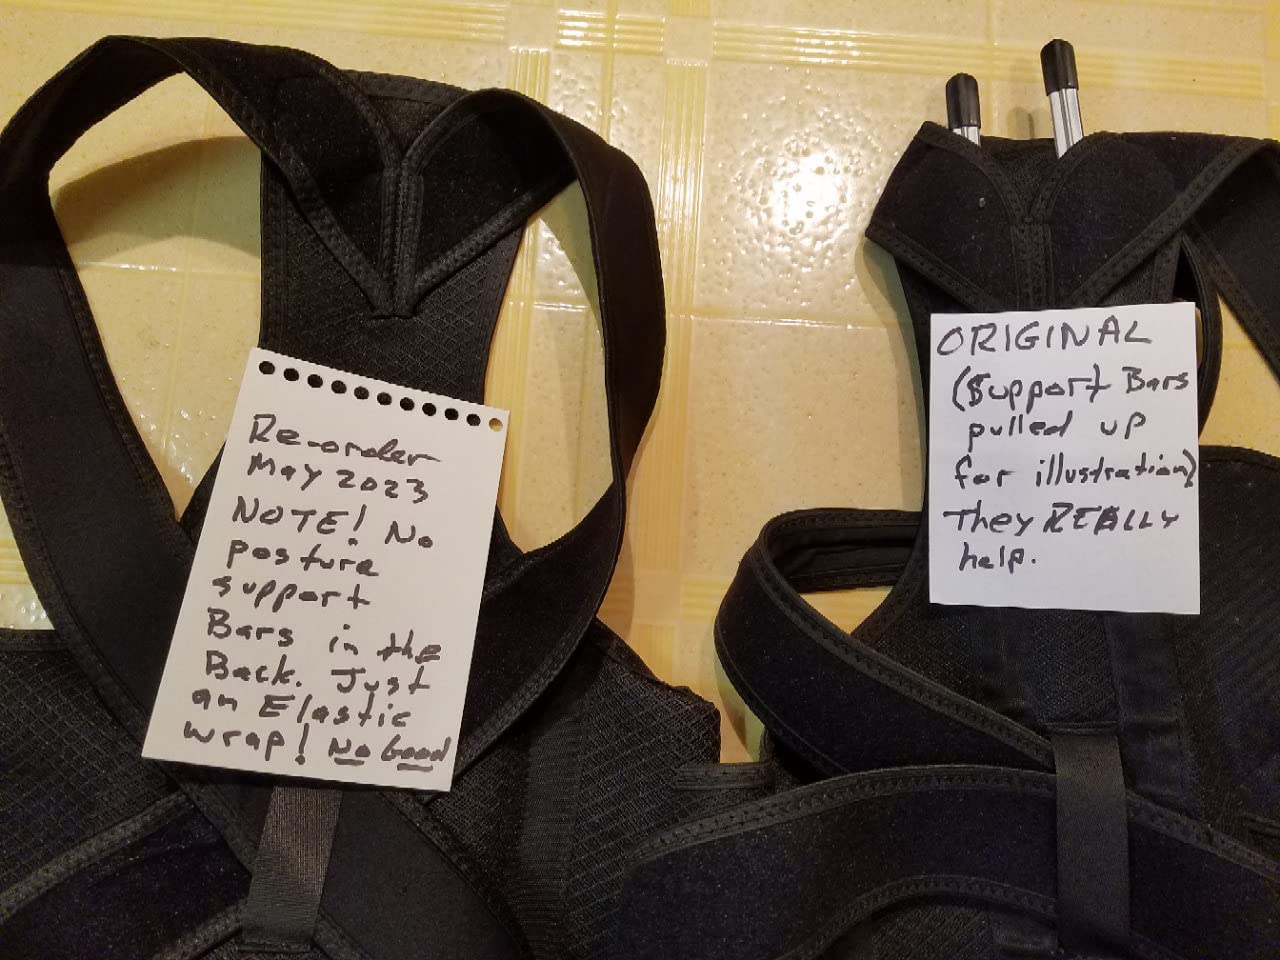 Re-order
May 2023
NOTE! No
posture
support
Bars in the
Back. Just
an Elastic
wrap! No Good
ORIGINAL
(Support Bars
pulled up
for illustration)
They REALLY
help.